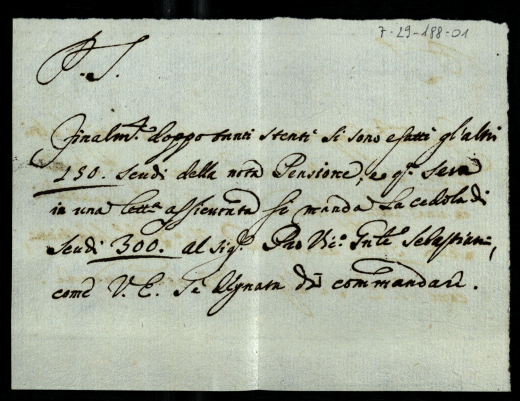 7-29-188-01
P.S.
Finalmte. doppo tanti stenti si sono esatti gl'altri
150. scudi della nota Pensione, e qta. sera
in una lettra assicurata si manda la cedola di
scudi 300. al Sigr. Vic. Gnle. Sebastiani,
come V. E. si è degnata di commandare.